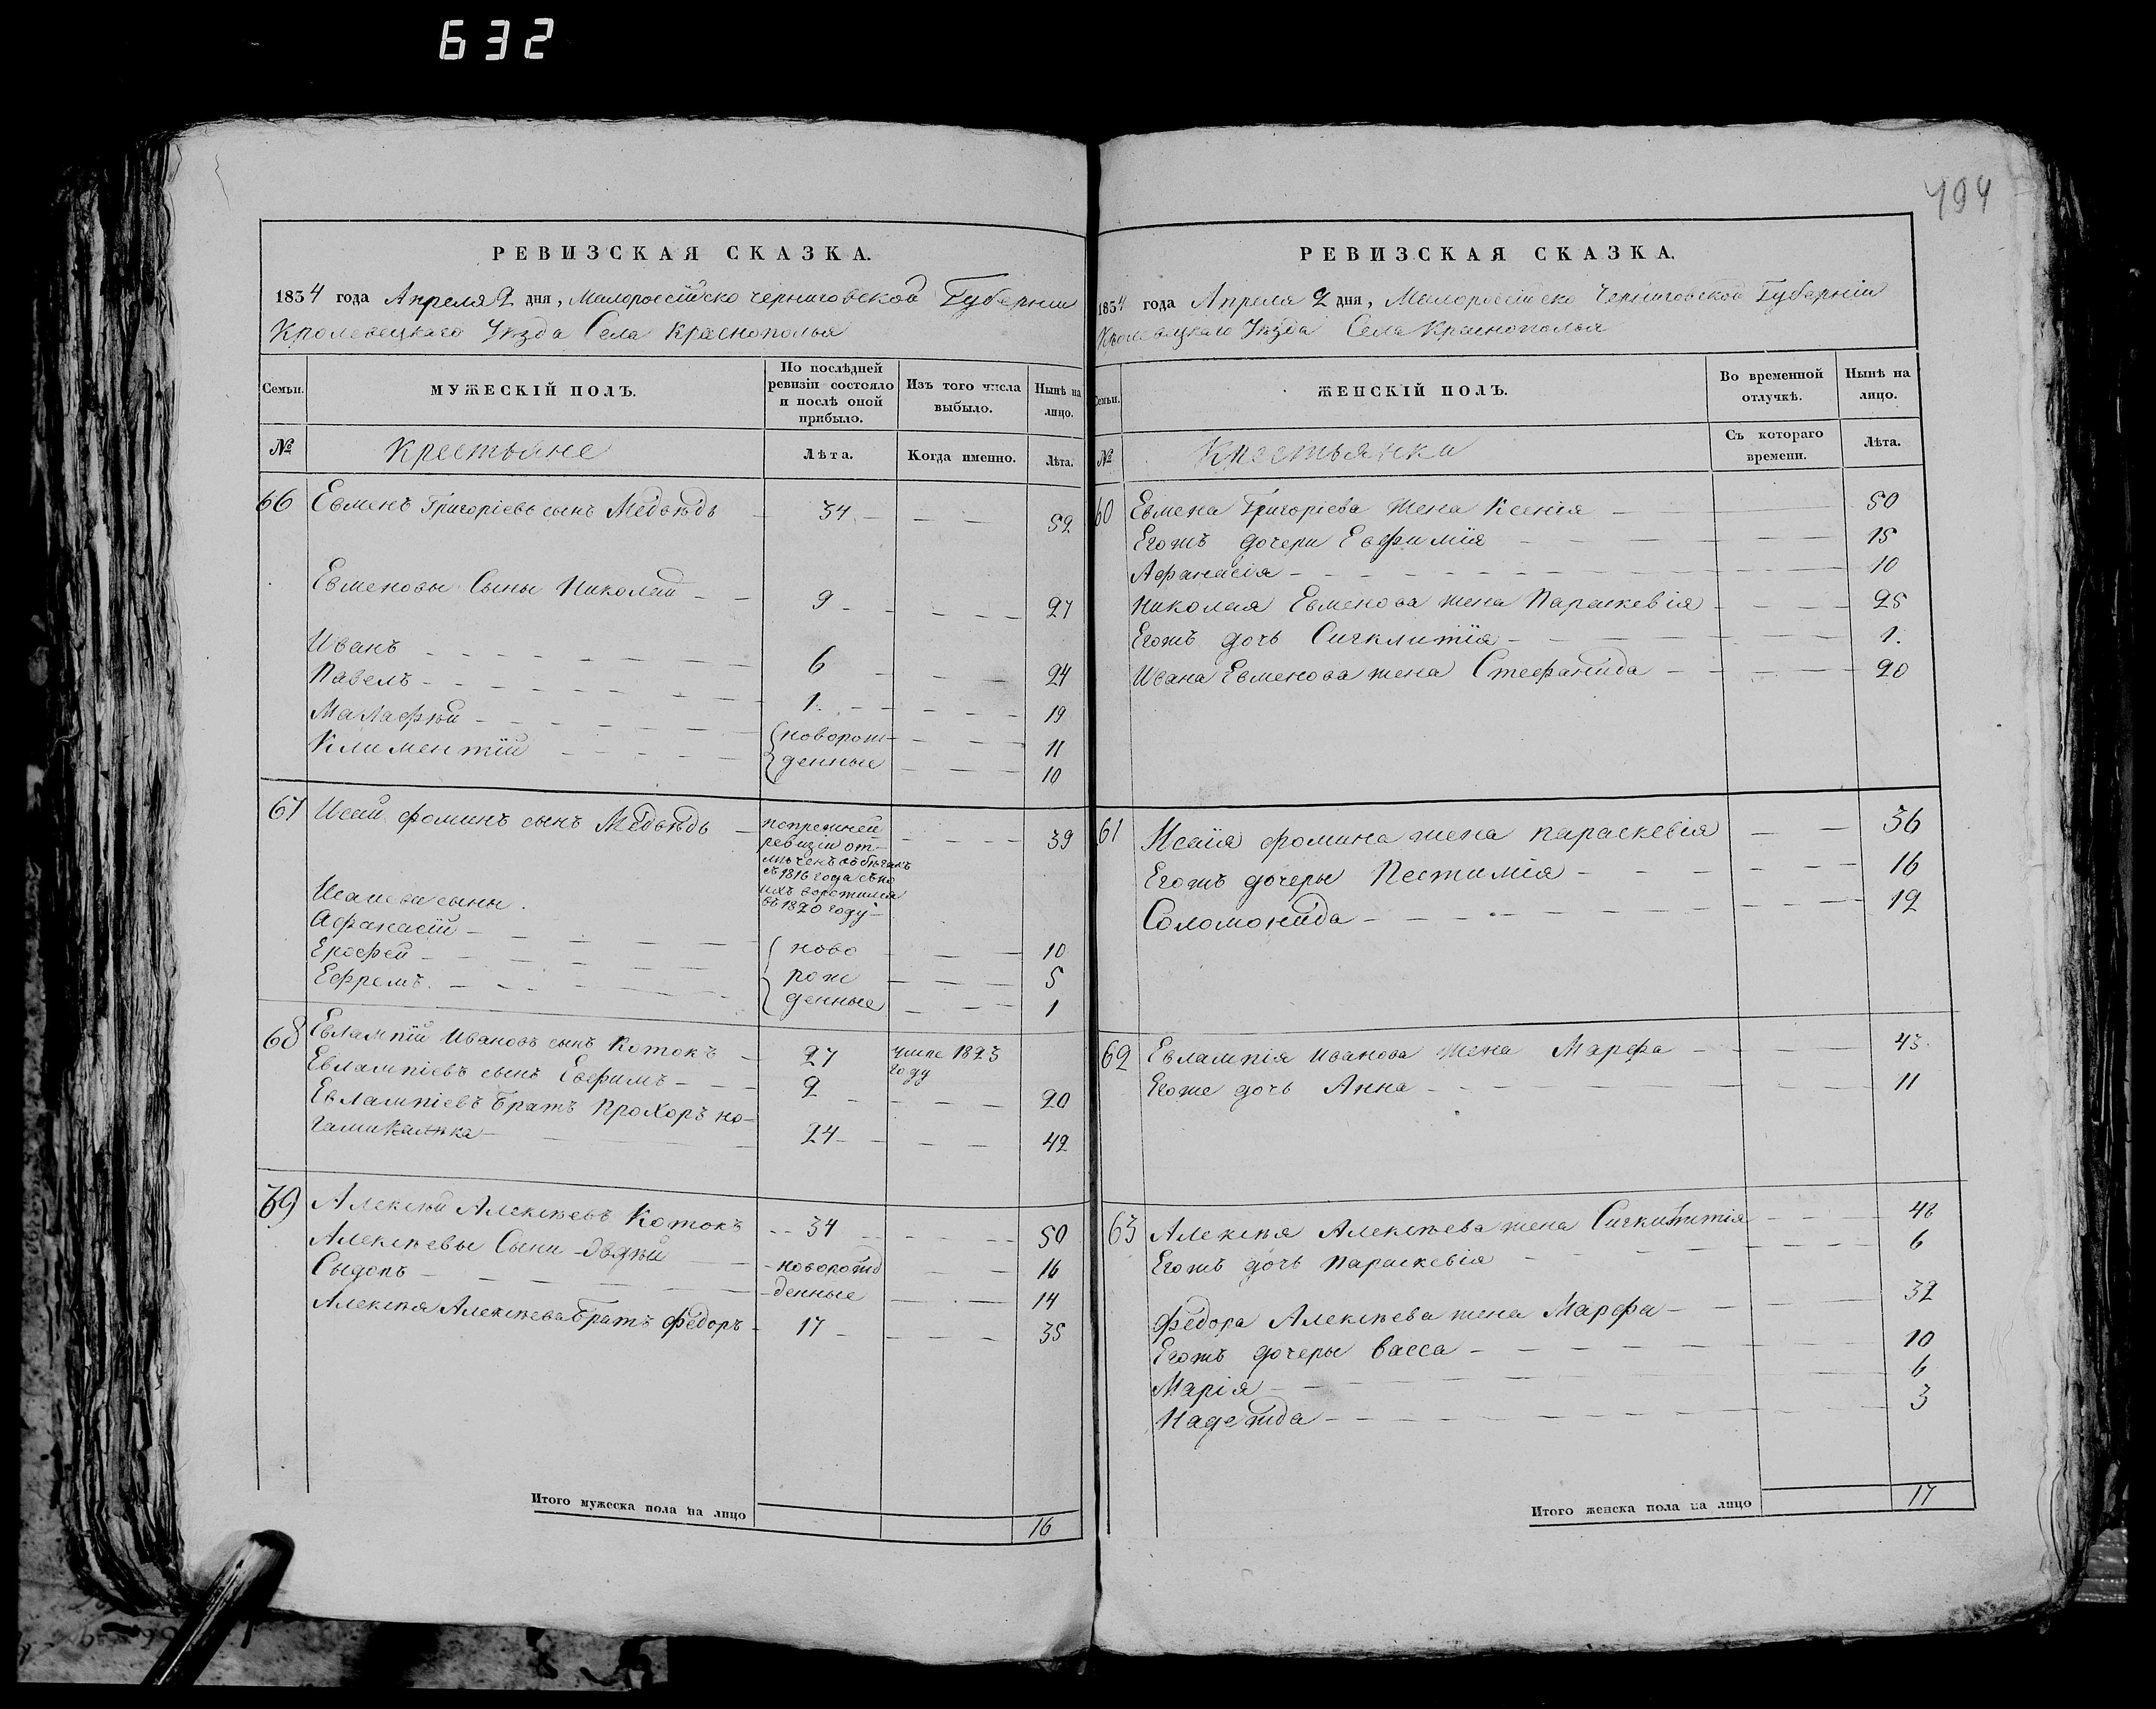 632
494
РЕВИЗСКАЯ СКАЗКА.
1834 года Апреля 2 дня, Малороссійско Черниговской Губерніи
Кролевецкаго Уѣзда Села Краснополья
Семьи.
МУЖЕСКІЙ ПОЛЪ.
По послѣдней ревизіи состояло и послѣ оной прибыло.
Изъ того числа выбыло.
Нынѣ на лицо.
№
Крестьяне
Лѣта.
Когда именно.
Лѣта.
66 Евменъ Григоріевъ сынъ Медвѣдь — 34 — — — 52
Евменовы Сыны Николай — — 9 — — — 27
Иванъ — — 6 — — — 24
Павелъ — — 1. — — — 19
Малафѣй — — новорож- — — 11
Климентій — — денные — — 10
67 Исай Фоминъ сынъ Медвѣдь — попрежней — — 39
ревизіи от-
мѣченъ въ бѣгахъ
съ 1816 года
воротился
въ 1820 году
Исаиевы сыны.
Афанасій — — ново — — 10
Ерофей — — рож — — 5
Ефремъ. — — денные — — 1
68 Евлампій Ивановъ сынъ Котокъ — 27 умре 1823
году
Евлампіевъ сынъ Евфимъ — — 2 — — 20
Евлампіевъ Братъ Прохоръ но-
гами Калѣка — 24 — — 42
69 Алексѣй Алексѣевъ Котокъ — 34 — — 50
Алексѣевы Сыны — новорожд — — 16
Сыдоръ — — денные — — 14
Алексѣя Алексѣева Братъ Федоръ — 17 — — 35
Итого мужеска пола на лицо
16
РЕВИЗСКАЯ СКАЗКА.
1834 года Апреля 2 дня, Малороссійско Черниговской Губерніи
Кролевецкаго Уѣзда Села Краснополья
Семьи.
ЖЕНСКІЙ ПОЛЪ.
Во временной отлучкѣ.
Нынѣ на лицо.
№
Крестьянки
Съ котораго времени.
Лѣта.
60 Евмена Григоріева жена Ксенія — 50
Егожъ дочери Евфимія — — 15
Афанасія — — 10
Николая Евменова жена Параскевія — — 25
Егожъ дочь Сигклитія — — 1.
Ивана Евменова жена Стефанида — — 20
61 Исаія Фомина жена Параскевія — — 36
Егожъ дочеры — — 16
Соломонида — — 12
62 Евлампія Иванова жена Марфа — — 43
Егоже дочь Анна — — 11
63 Алексѣя Алексѣева жена Сигклитія — — 48
Егожъ дочь Параскевія — — 6
Федора Алексѣева жена Марфа — — 32
Егожъ дочеры Васса — — 10
Марія — — 6
Надежда — — 3
Итого женска пола на лицо
17